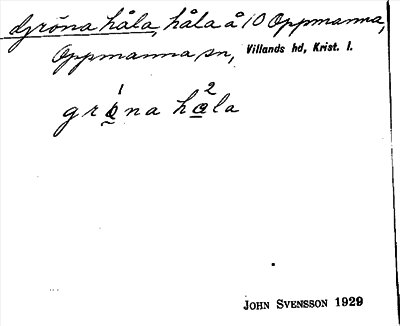 Gröna håla, håla å 10 Oppmanna,
Oppmanna sn, Villands hd, Krist. l.
1 2
grna hala
JOHN SVENSSON 1929